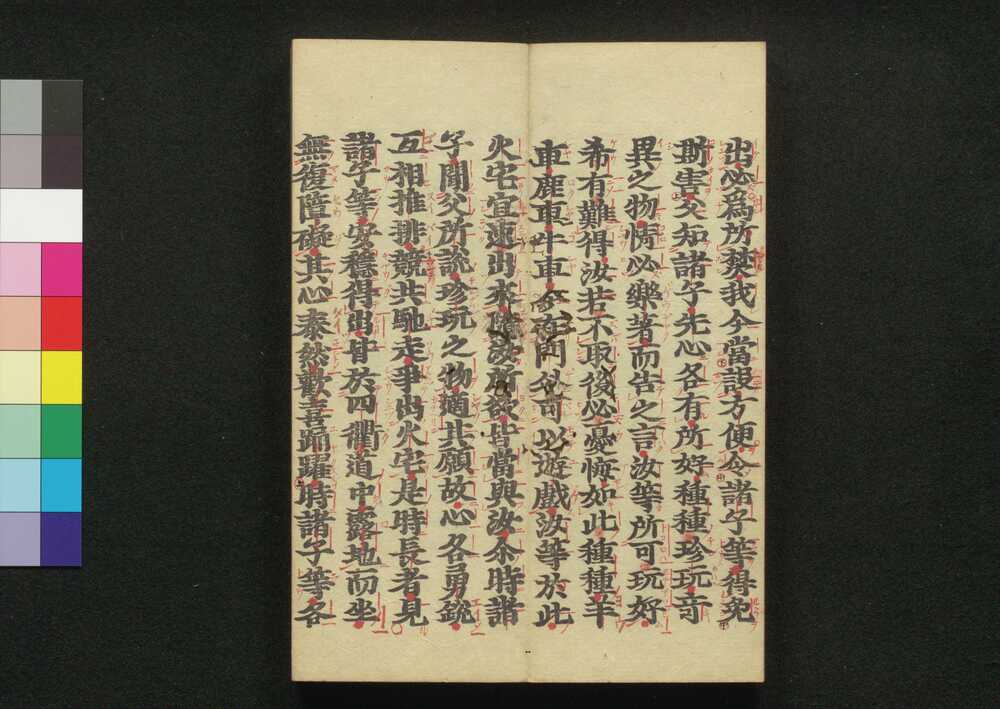 出必為所焚我今當設方便令諸子等得免
斯害父知諸子先心各有所好種種珍玩奇
異之物情必樂著而告之言汝等所可玩好
希有難得汝若不取後必憂悔如此種種羊
車鹿車牛車今在門外可以遊戲汝等於此
火宅宜速出來隨汝所欲皆當與汝尒時諸
子聞父所說珍玩之物適其願故心各勇銳
互相推排競共馳走爭出火宅是時長者見
諸子等安穩得出皆於四衢道中露地而坐
無復障礙其心泰然歡喜踊躍時諸子等各